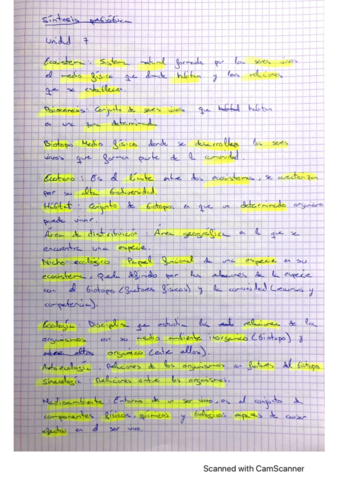 Síntesis periódica
Unidad 7
Ecosistema: Sistema natural formado por los seres vivos
el medio físico que donde habitan y las relaciones
que se establecen.
Biocenosis: Conjunto de seres vivos que habitan
en una determinada
Biotopo: Medio físico donde se desarrollan los seres
vivos que forman parte de la comunidad.
Ecotono: Es el límite entre dos ecosistemas, se caracterizan
por su alta biodiversidad.
Hábitat: Conjunto de biotopos en que un determinado organismo
puede vivir.
Área de distribución: Área geográfica en la que se
encuentra una especie.
Nicho ecológico: Papel funcional de una especie en su
ecosistema. Queda definido por las relaciones de la especie
con el biotopo (factores físicos) y la comunidad (recursos y
competencia).
Ecología: Disciplina que estudia las relaciones de los
organismos con su medio ambiente inorgánico (biotopo) y
orgánico (entre ellos).
Autoecología: Relaciones de los organismos factores del biotopo
Sinecología: Relaciones entre los organismos.
Medioambiente: Entorno de un ser vivo, es el conjunto de
componentes físicos, químicos y biológicos capaces de causar
efectos en el ser vivo.
Scanned with CamScanner